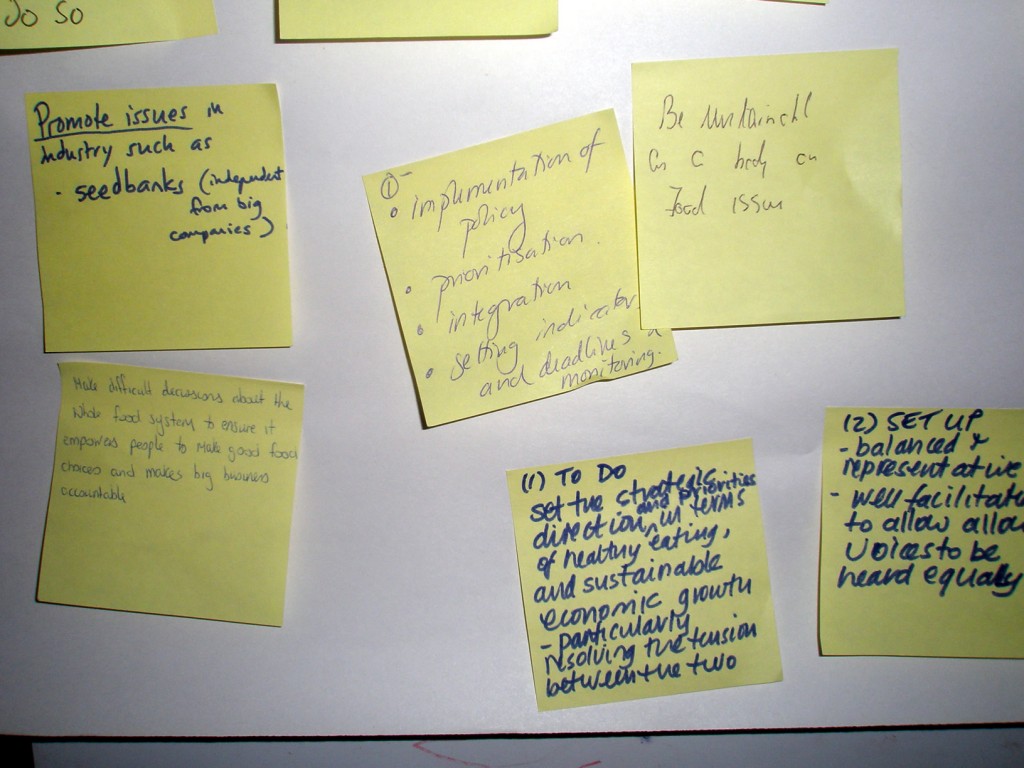 Do So
Promote issues in
industry such as
· seedbanks (independent
from big
companies)
Make difficult decissions about the
whole food system to ensure it
empowers people to make good food
choices and makes big business
accountable
(1)
• implementation of
policy
• prioritisation.
• integration
• setting indicator
and deadlines
monitoring.
Be
body on
Food issues
(1) TO DO
set the strategic
and priorities
direction, in terms
of healthy eating,
and sustainable
economic growth
- particularly
resolving the tension
between the two
(2) SET UP
- balanced &
representative
- well facilitate
to allow allow
voices to be
heard equally